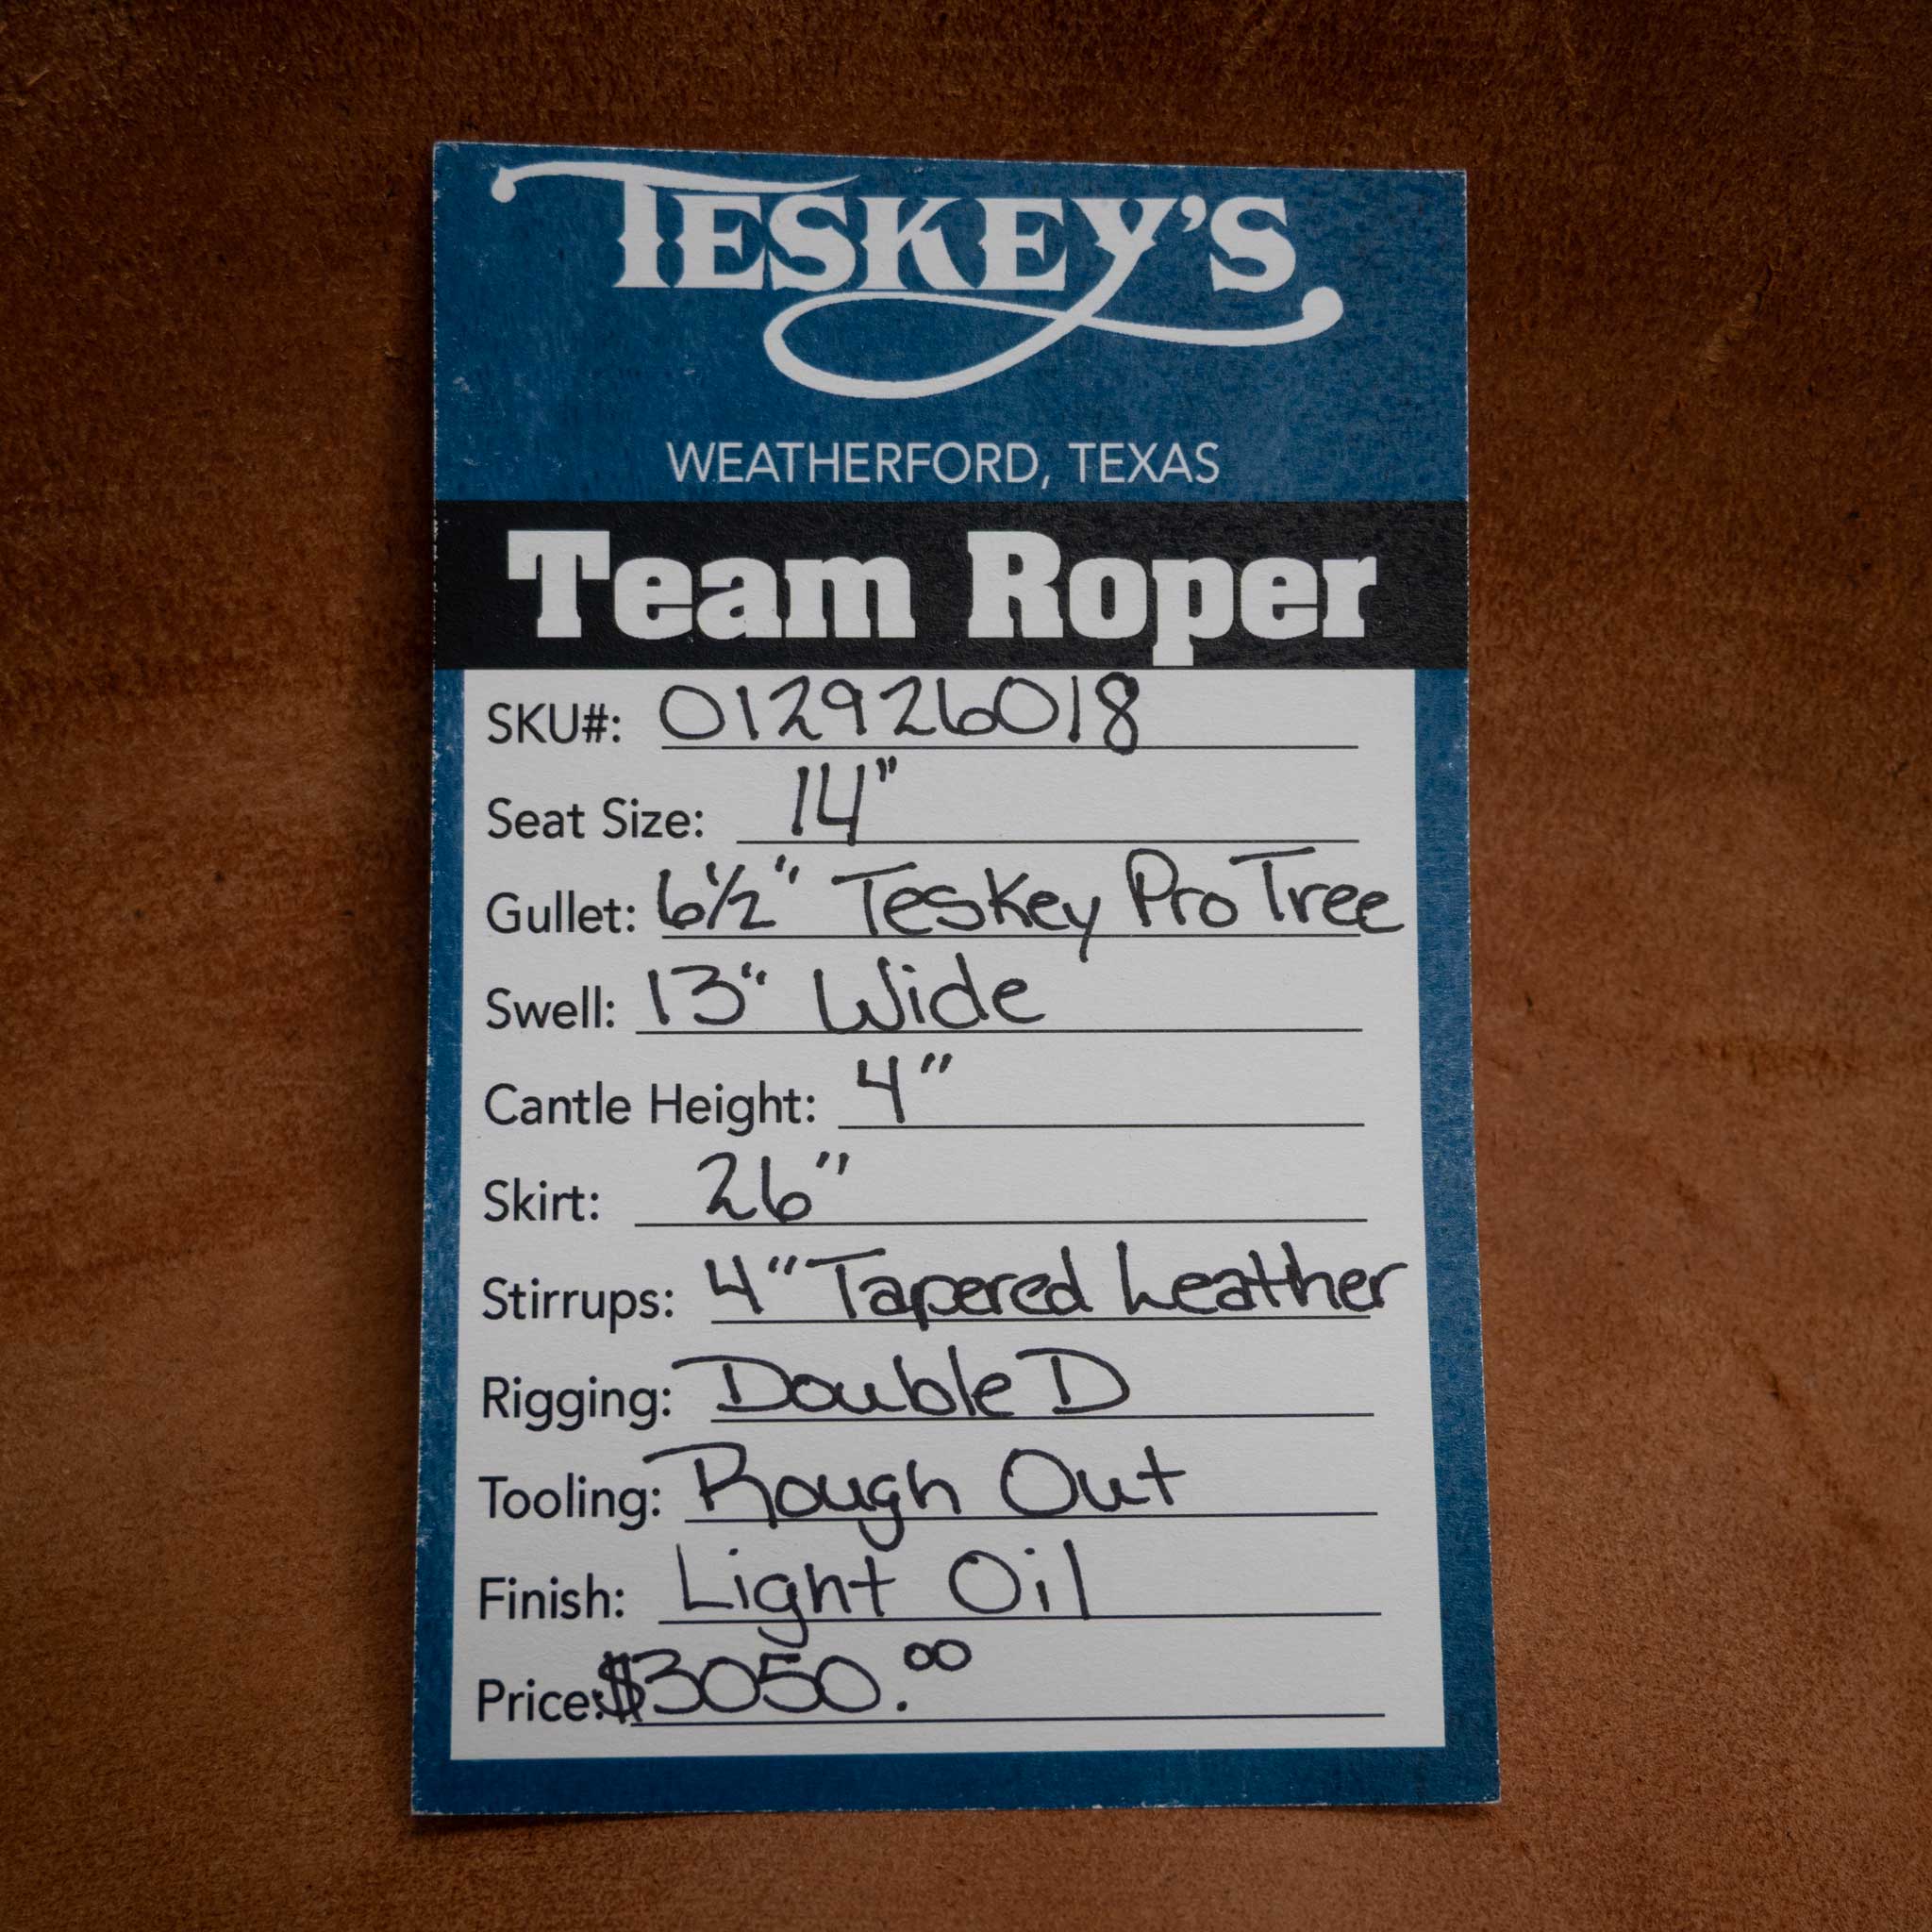 TESKEY'S
WEATHERFORD, TEXAS
Team Roper
SKU#: 012926018
Seat Size: 14"
Gullet: 6 1/2" Teskey Pro Tree
Swell: 13" Wide
Cantle Height: 4"
Skirt: 26"
Stirrups: 4" Tapered Leather
Rigging: Double D
Tooling: Rough Out
Finish: Light Oil
Price: $3050.00